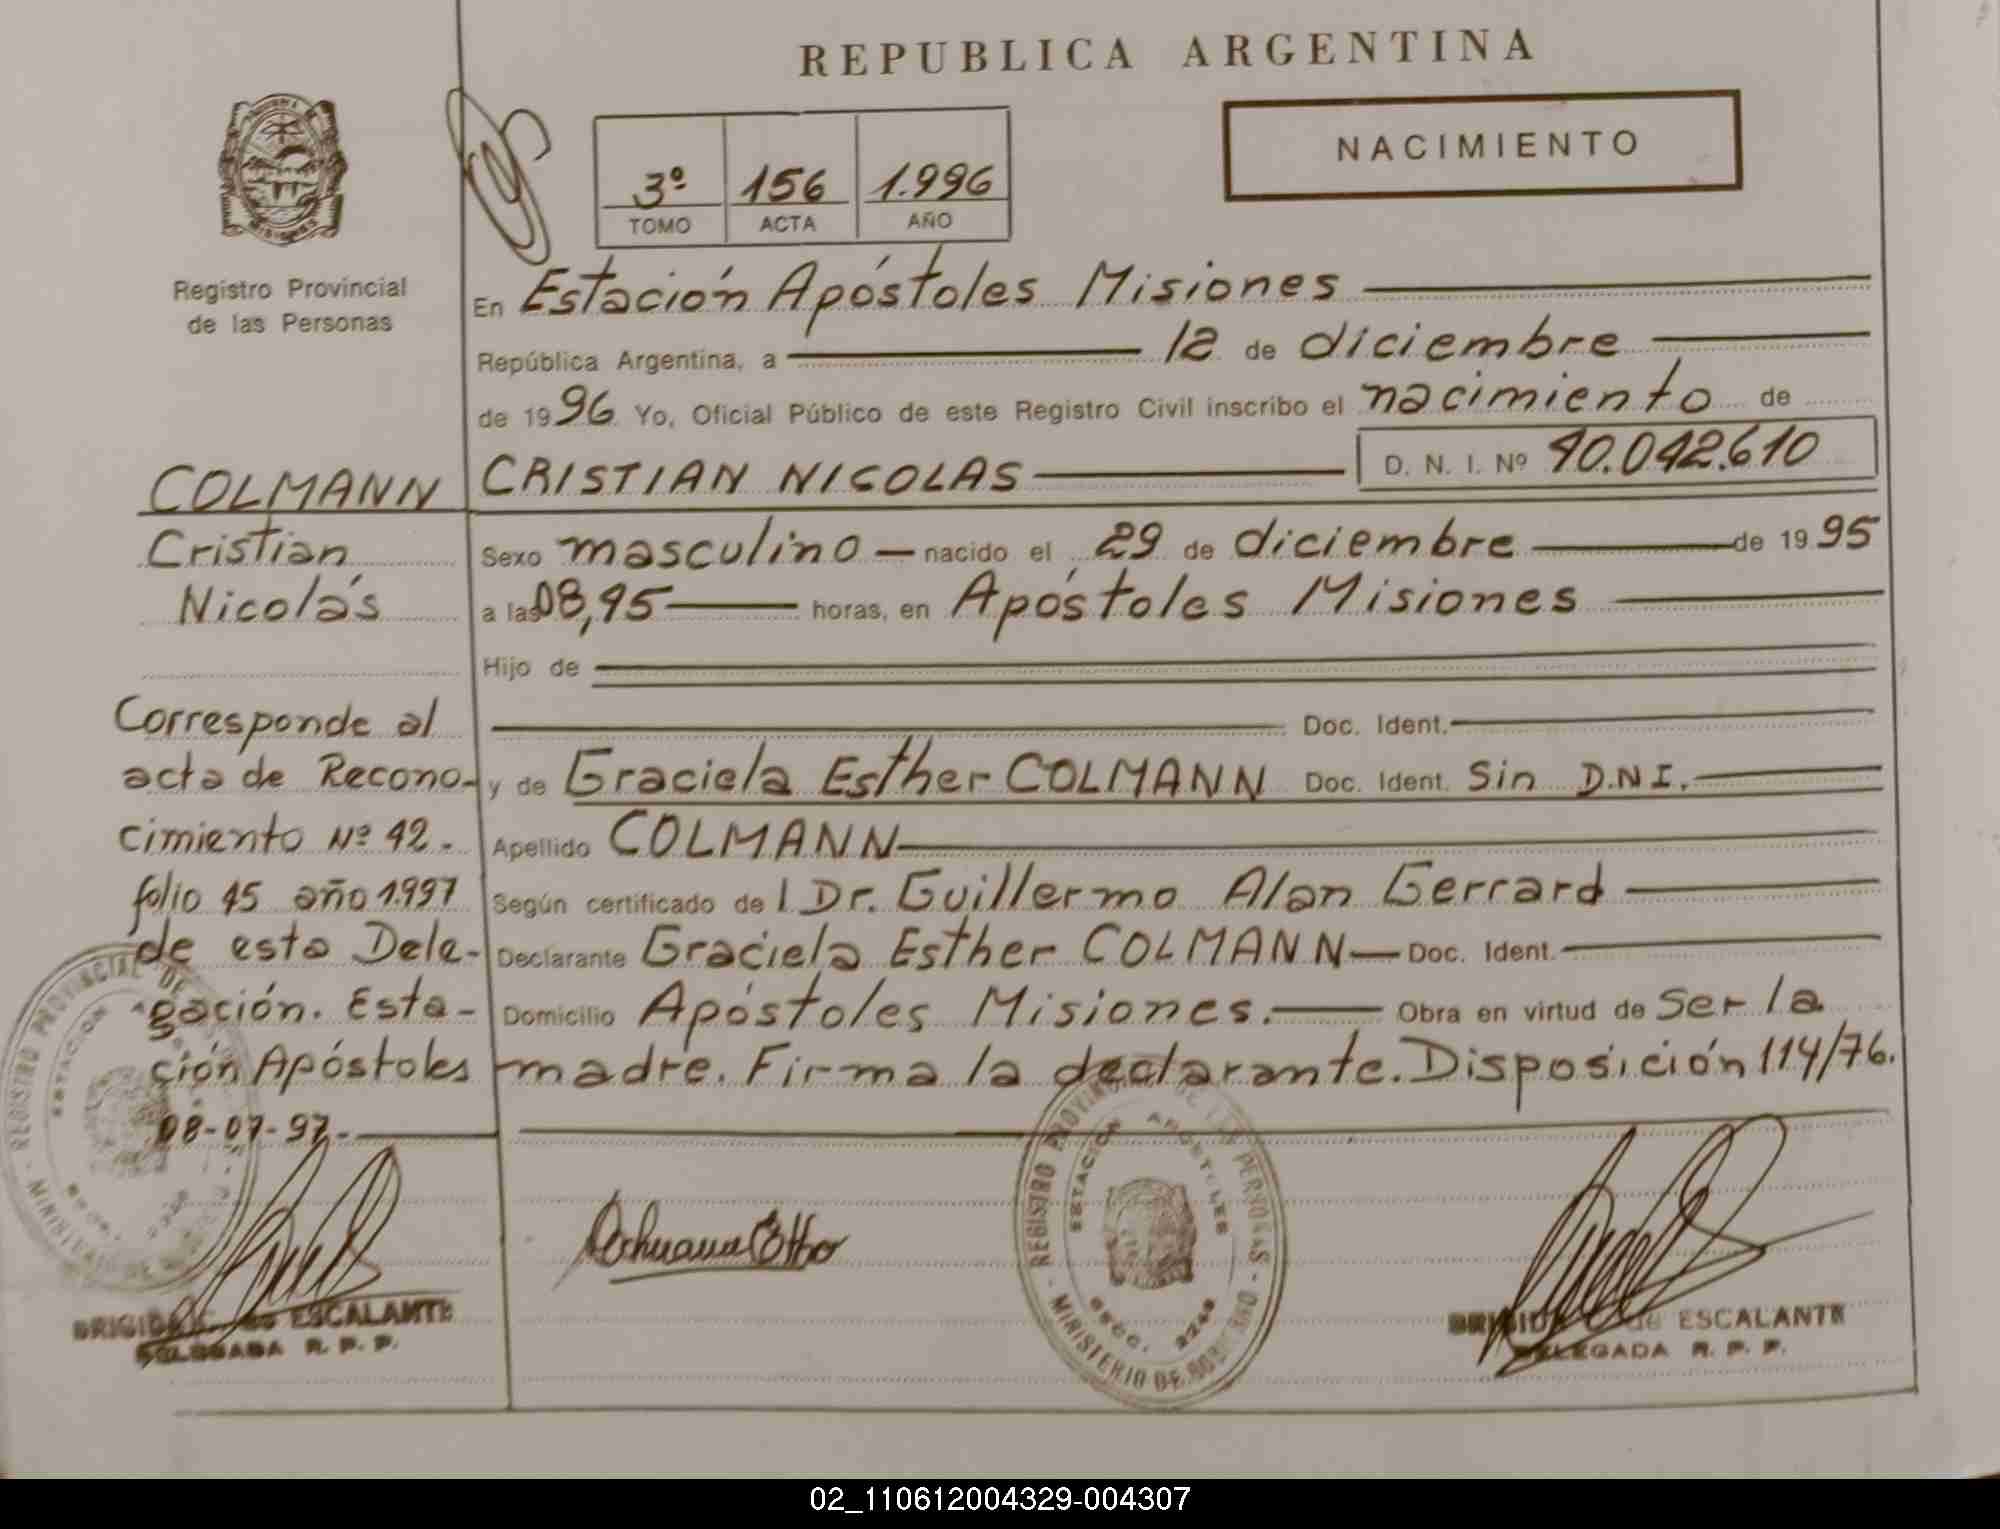 REPUBLICA ARGENTINA
NACIMIENTO
3º 156 1.996
TOMO ACTA AÑO
Registro Provincial
de las Personas
En Estación Apóstoles Misiones
República Argentina, a 12 de diciembre
de 1996 Yo, Oficial Público de este Registro Civil inscribo el nacimiento de
CRISTIAN NICOLAS D. N. I. Nº 40.042.610
Sexo masculino nacido el 29 de diciembre de 1995
a las 08,45 horas, en Apóstoles Misiones
Hijo de
Doc. Ident.
y de Graciela Esther COLMANN Doc. Ident. Sin D.N.I.
Apellido COLMANN
Según certificado del Dr. Guillermo Alan Gerrard
Declarante Graciela Esther COLMANN Doc. Ident.
Domicilio Apóstoles Misiones. Obra en virtud de Ser la
madre. Firma la declarante. Disposición 114/76.
COLMANN
Cristian
Nicolás
Corresponde al
acta de Recono-
cimiento Nº 42.
folio 45 año 1.997
de esta Dele-
gación. Esta-
ción Apóstoles
08-07-97.
REGISTRO PROVINCIAL DE
ESTACION
REGISTRO PROVINCIAL DE LAS PERSONAS - MINISTERIO DE GOBIERNO -
ESTACION APOSTOLES
SECC. 2248
BRIGIDA C. de ESCALANTE
DELEGADA R. P. P.
BRIGIDA C. de ESCALANTE
DELEGADA R. P. P.
02_110612004329-004307